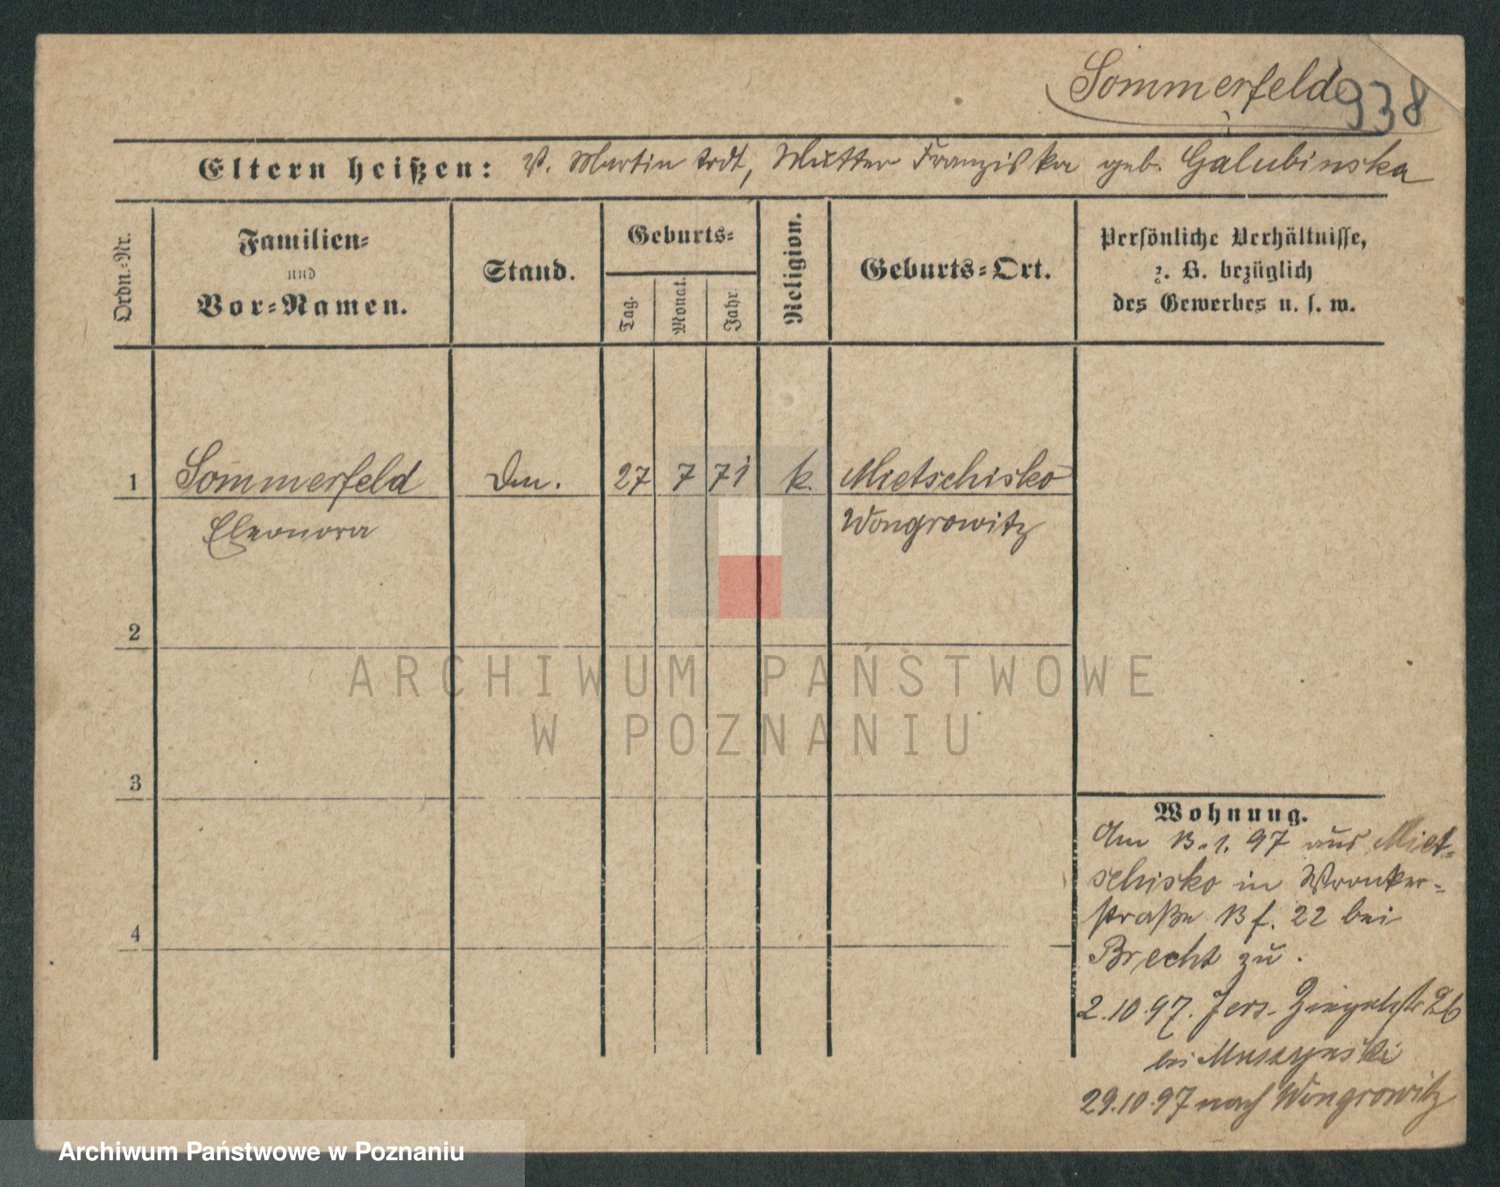 Sommerfeld 938
Eltern heißen: V. Martin todt, Mutter Franziska geb. Galubinska
Ordn.-Nr.
Familien-
und
Vor-Namen.
Stand.
Geburts-
Tag.
Monat.
Jahr
Religion.
Geburts-Ort.
Persönliche Verhältnisse,
z. B. bezüglich
des Gewerbes u. s. w.
1 Sommerfeld 27 7 71 k. Mietschisko
Eleonora Wongrowitz
2
3
4
Wohnung.
Am 13.1.97 aus Miet-
schisko in Wronker-
straße 13 f. 22 bei
Brecht zu.
2.10.97. Jers. 26
bei Muszynski
29.10.97 nach Wongrowitz
ARCHIWUM PAŃSTWOWE
W POZNANIU
Archiwum Państwowe w Poznaniu